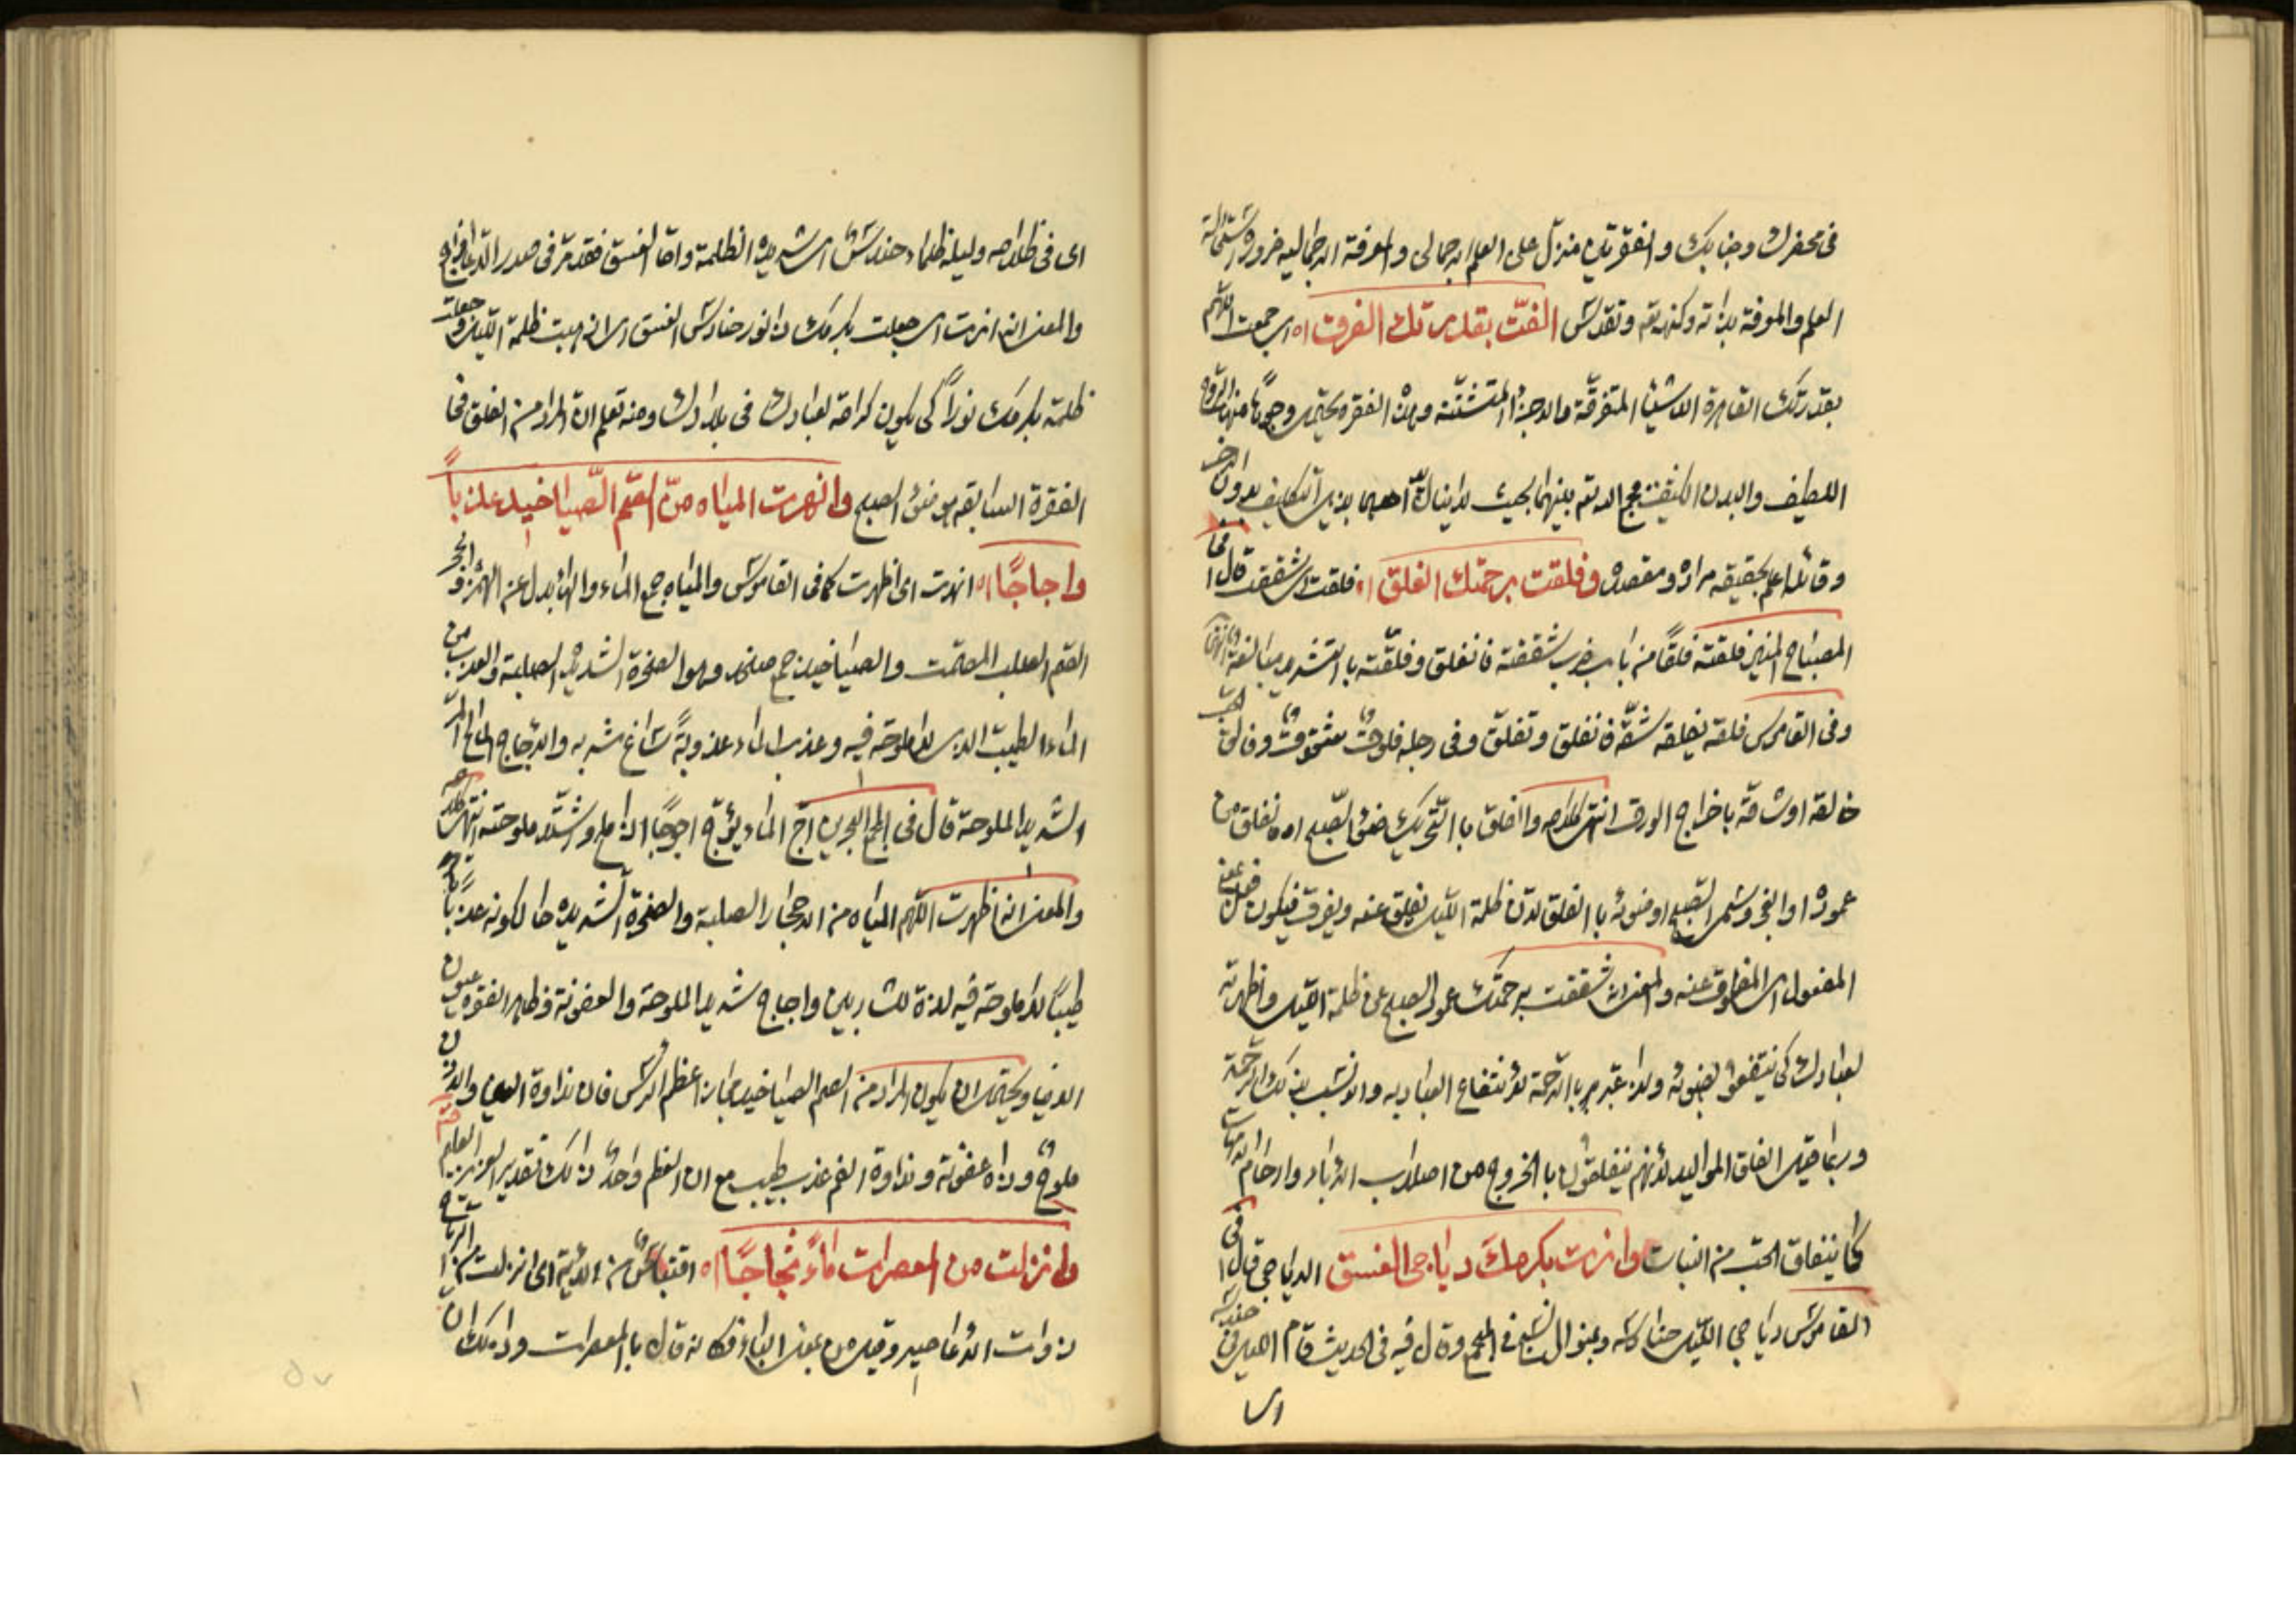 فى محضرك وجنابك والفقرتان منزل على العلم الاجمالى والمعرفة الاجمالية ضرورة استحالة
العلم والمعرفة بذاته وكنهه تع وتقدس الفت بقدرتك الفرق اه اى جمعت اللهم
بقدرتك القاهرة الاشياء المتفرقة والاجزاء المتشتتة وهذه الفقرة يحتمل وجوها منها الروح
اللطيف والبدن الكثيف فجمع الله تع بينهما بحيث لا ينال احدهما بدون الاخر
وقائلها اعلم بحقيقة مراده ومقصده وفلقت برحمتك الفلق اه فلقت اى شققت قال فى
المصباح المنير فلقته فلقا من باب ضرب شققته فانفلق وفلقته بالتشديد مبالغة
وفى القاموس فلقه يفلقه شقه فانفلق وتفلق وفى رجله فلوق شقوق وفالق الحب
خالقه او شاقه باخراج الورق انتهى كلامه والفلق بالتحريك ضوء الصبح اه فلق من
عموده او الفجر وسمى الصبح او ضوئه بالفلق لان ظلمة الليل يفلق عنه ويفرق فيكون فعل بمعنى
المفعول اى المفلوق عنه والمعنى انك شققت برحمتك عمود الصبح عن ظلمة الليل واظهرته
لعبادك كى ينتفعوا بضوئه ولذا عبر بالرحمة لانتفاع العباد به والانسب بذلك الرحمة
وربما قيل الفلق المواليد لانهم ينفلقون بالخروج من اصلاب الاباء وارحام الامهات
كما ينفلق الحب من النبات وانرت بكرمك دياجى الغسق الدياجى قال فى
القاموس دياجى الليل حنادسه وبمنوال النسج فى المجمع وقال فيه فى الحديث قام الليل فى حندسه
اى
اى فى ظلامه وليلة ظلماء حندس اى شديدة الظلمة واما الغسق فقد مر فى صدر الدعاء
والمعنى انه انرت اى جعلت بكرمك ذا نور حنادس الغسق اى اذهبت ظلمة الليل وجعلت
ظلمته بكرمك نورا كى يكون كرامة لعبادك فى بلادك ومنه تعلم ان المراد من الفلق فى
الفقرة السابقة هو ضوء الصبح وانهرت المياه من الصم الصياخيد عذبا
واجاجا اه انهرت اى اظهرت كما فى القاموس والمياه جمع الماء والهاء بدل عن الهمزة والحجر
الصم الصلب المصمت والصياخيد جمع صيخد وهو الصخرة الشديدة الصلبة والعذب من
الماء الطيب الذى لا ملوحة فيه وعذب الماء عذوبة ساغ شربه والاجاج المالح المر
الشديد الملوحة قال فى المجمع البحرين اج الماء يؤج اجوجا اذا ملح واشتد ملوحته انتهى كلامه
والمعنى انه اظهرت اللهم المياه من الاحجار الصلبة والصخرة الشديدة حالكونه عذبا
طيبا لا ملوحة فيه لذة للشاربين واجاج شديد الملوحة والعفونة وظاهر الفقرة عيون
الدنيا ويحتمل ان يكون المراد من الصم الصياخيد مجازا عظم الراس فان نداوة العين والاذن
ملوح وذات عفونة ونداوة الفم عذب طيب مع ان العظم واحد ذلك تقدير العزيز العليم
وانزلت من المعصرات ماء ثجاجا اه اقتباس من الاية اى انزلت من الرياح
ذوات الاعاصير وقيل من بمعنى الباء فكانه قال بالمعصرات وذلك ان